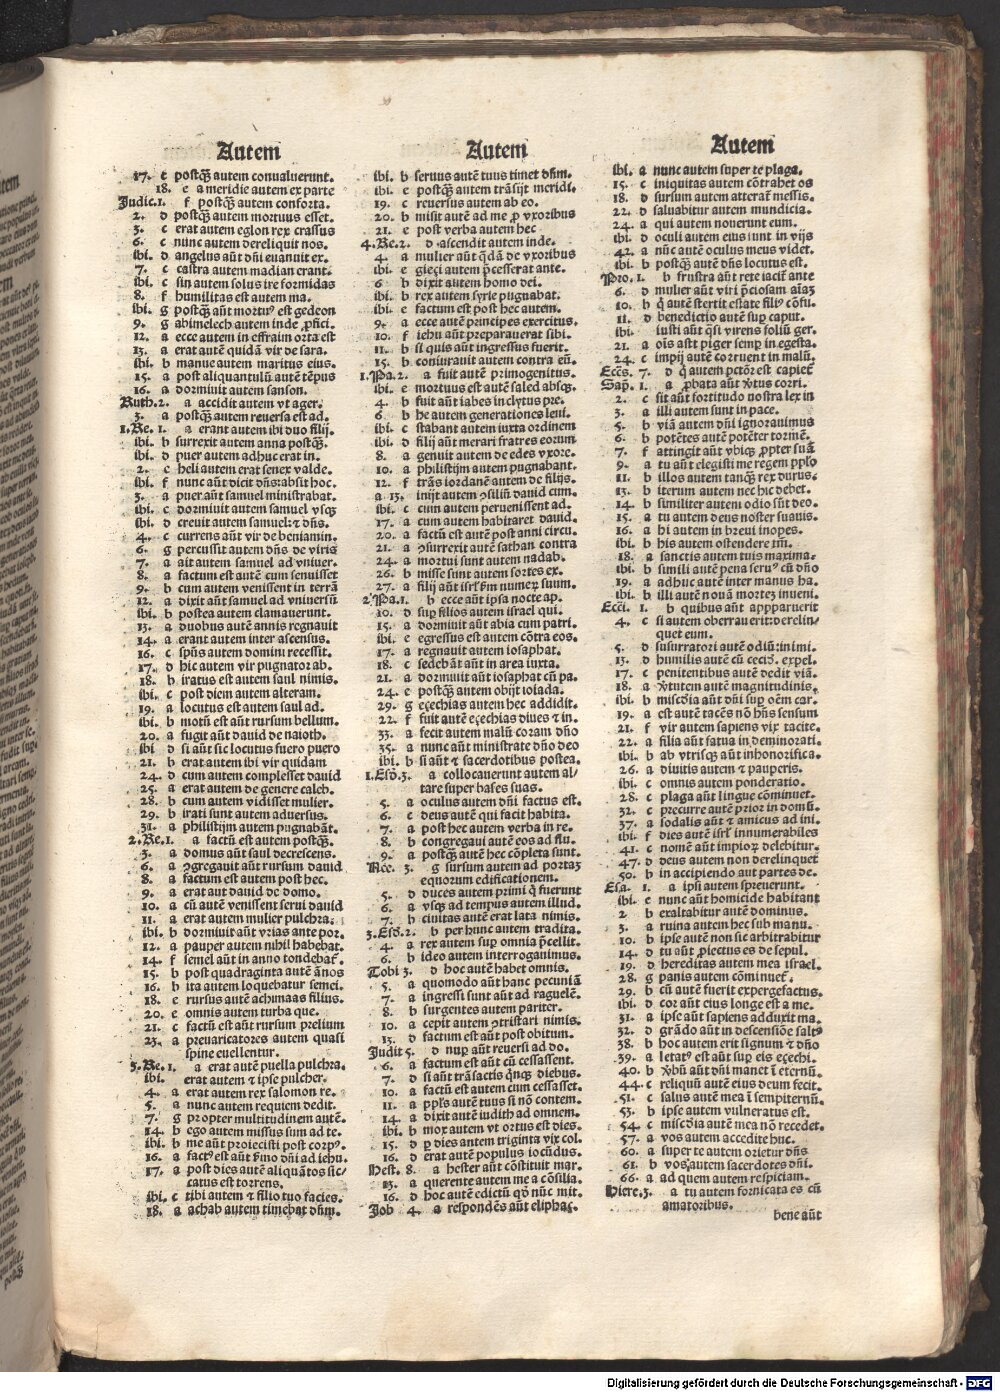 Autem
17. e postq̄ autem conualuerunt.
18. e a meridie autem ex parte
Judic.1. f postq̄ autem conforta.
2. d postq̄ autem mortuus esset.
3. c erat autem eglon rex crassus
6. c nunc autem dereliquit nos.
ibi. d angelus aūt dn̄i euanuit ex.
7. c castra autem madian erant.
ibi. c sin autem solus ire formidas
8. f humilitas est autem ma.
ibi. g postq̄ aūt mortuꝰ est gedeon
9. g abimelech autem inde ꝓfici.
12. a ecce autem in effraim orta est
13. a erat autē quidā vir de sara.
ibi. b manue autem maritus eius.
15. a post aliquantulū autē tēpus
16. a dormiuit autem sanson.
Ruth.2. a accidit autem vt ager.
3. a postq̄ autem reuersa est ad.
1.Re.1. a erant autem ibi duo filij.
ibi. b surrexit autem anna postq̄.
ibi. d puer autem adhuc erat in.
2. c heli autem erat senex valde.
ibi. f nunc aūt dicit dn̄s: absit hoc.
3. a puer aūt samuel ministrabat.
ibi. c dormiuit autem samuel vsq̄
ibi. d creuit autem samuel: ⁊ dn̄s.
4. c currens aūt vir de beniamin.
6. g percussit autem dn̄s de viris
7. a ait autem samuel ad vniuer.
8. a factum est autē cum senuisset
9. b cum autem venissent in terrā
12. a dixit aūt samuel ad vniuersū
ibi. b postea autem clamauerunt.
13. a duobus autē annis regnauit
14. a erant autem inter ascensus.
16. c spūs autem domini recessit.
17. d hic autem vir pugnator ab.
18. b iratus est autem saul nimis.
ibi. c post diem autem alteram.
19. a locutus est autem saul ad.
ibi. b motū est aūt rursum bellum.
20. a fugit aūt dauid de naioth.
ibi d si aūt sic locutus fuero puero
21. b erat autem ibi vir quidam
24. d cum autem complesset dauid
25. a erat autem de genere caleb.
28. b cum autem vidisset mulier.
29. b irati sunt autem aduersus.
31. a philistijm autem pugnabāt.
2.Re.1. a factū est autem postq̄.
3. a domus aūt saul decrescens.
6. a ꝯgregauit aūt rursum dauid
8. a factum est autem post hec.
9. a erat aut dauid de domo.
10. a cū autē venissent serui dauid
11. a erat autem mulier pulchra.
ibi. b dormiuit aūt vrias ante por.
12. a pauper autem nihil habebat.
14. f semel aūt in anno tondebat̄.
15. b post quadraginta autē ānos
16. b ita autem loquebatur semei.
18. e rursus autē achimaas filius.
20. e omnis autem turba que.
21. c factū est aūt rursum prelium
23. a preuaricatores autem quasi
spine euellentur.
3.Re.1. a erat autē puella pulchra.
ibi. erat autem ⁊ ipse pulcher.
4. a erat autem rex salomon re.
5. a nunc autem requiem dedit.
7. g propter multitudinem autē.
14. b ego autem missus sum ad te.
ibi. b me aūt proiecisti post corpꝰ.
16. a factꝰ est aūt ẜmo dn̄i ad iehu.
17. a post dies autē aliquātos sic/
catus est torrens.
ibi. c tibi autem ⁊ filio tuo facies.
18. a achab autem timebat dn̄m.
Autem
ibi. b seruus autē tuus timet dn̄m.
ibi. e postq̄ autem trāsijt meridi.
19. c reuersus autem ab eo.
20. b misit autē ad me ꝓ vxoribus
21. e post verba autem hec
4.Re.2. d ascendit autem inde.
4. a mulier aūt q̄dā de vxoribus
ibi. e gieçi autem p̄cesserat ante.
6. b dixit autem homo dei.
ibi. b rex autem syrie pugnabat.
ibi. e factum est post hec autem.
9. a ecce autē principes exercitus.
10. f iehu aūt preparauerat sibi.
11. b si quis aūt ingressus fuerit.
15. b coniurauit autem contra eū.
1.Pa.2. a fuit autē primogenitus.
ibi. e mortuus est autē saled absq̄.
4. b fuit aūt iabes inclytus pre.
6. b he autem generationes leui.
ibi. c stabant autem iuxta ordinem
ibi. d filij aūt merari fratres eorum
8. a genuit autem de edes vxore.
10. a philistijm autem pugnabant.
12. f trās iordanē autem de filijs.
a 13. inijt autem ꝯsiliū dauid cum.
ibi. c cum autem peruenissent ad.
17. a cum autem habitaret dauid.
20. a factū est autē post anni circu.
21. a ꝯsurrexit autē sathan contra
24. a mortui sunt autem nadab.
26. b misse sunt autem sortes ex.
27. a filij aūt isrl̓ ẜm numeꝝ suum.
2 Pa.1. b ecce aūt ipsa nocte ap.
10. d suꝑ filios autem israel qui.
15. a dormiuit aūt abia cum patri.
ibi. e egressus est autem cōtra eos.
17. a regnauit autem iosaphat.
18. c sedebāt aūt in area iuxta.
21. a dormiuit aūt iosaphat cū pa.
24. e postq̄ autem obijt ioiada.
29. g eçechias autem hec addidit.
22. f fuit autē eçechias diues ⁊ in.
33. a fecit autem malū coram dn̄o
35. a nunc aūt ministrate dn̄o deo
ibi. b si aūt ⁊ sacerdotibus postea.
1.Esd̄.3. a collocauerunt autem al/
tare super bases suas.
5. a oculus autem dn̄i factus est.
6. c deus autē qui facit habita.
7. a post hec autem verba in re.
8. b congregaui autē eos ad flu.
9. a postq̄ autē hec cōpleta sunt.
Nee. 3. g sursum autem ad portaꝫ
equorum edificationem.
5. d duces autem primi q̄ fuerunt
6. a vsq̄ ad tempus autem illud.
7. b ciuitas autē erat lata nimis.
3.Esd̄.2. b per hunc autem tradita.
4. a rex autem suꝑ omnia p̄cellit.
6. b ideo autem interrogauimus.
Tobi 3. d hoc autē habet omnis.
5. a quomodo aūt hanc pecuniā
7. a ingressi sunt aūt ad raguelē.
8. b surgentes autem pariter.
10. a cepit autem ꝯtristari nimis.
13. d factum est aūt post obitum.
Judit 5. d nuꝑ aūt reuersi ad do.
6. a factum est aūt cū cessassent.
7. d si aūt trāsactis q̄nq̄ diebus.
10. a factū est autem cum cessasset.
11. a ppl̄s autē tuus si nō contem.
14. a dixit autē iudith ad omnem.
ibi. b mox autem vt ortus est dies.
15. d ꝑ dies autem triginta vix col.
16. d erat autē populus iocūdus.
Hest. 8. a hester aūt cōstituit mar.
13. a querente autem me a cōsilia.
16. d hoc autē edictū qd̄ nūc mit.
Job 4. a respondēs aūt eliphaꝫ.
Autem
ibi. a nunc autem super te plaga.
15. c iniquitas autem cōtrahet os
18. d sursum autem atterat̄ messis.
22. d saluabitur autem mundicia.
24. a qui autem nouerunt eum.
ibi. d oculi autem eius sunt in vijs
42. a nūc autē oculus meus videt.
ibi. b postq̄ autē dn̄s locutus est.
Pro. 1. b frustra aūt rete iacit̄ ante
6. d mulier aūt viri p̄ciosam aīaꝫ
10. b q̄ autē stertit estate filiꝰ cōfu.
11. d benedictio autē suꝑ caput.
ibi. iusti aūt qͣsi virens foliū ger.
21. a oīs aūt piger semꝑ in egesta.
24. c impij autē corruent in malū.
Eccs̄. 7. d q̄ autem pctōr est capiet̄
Sap̄. 1. a ꝓbata aūt v̓tus corri.
2. c sit aūt fortitudo nostra lex in
3. a illi autem sunt in pace.
5. b viā autem dn̄i ignorauimus
6. b potētes autē potēter tormē.
7. f attingit aūt vbiq̄ ꝓpter suā
9. a tu aūt elegisti me regem pplo
11. b illos autem tanq̄ rex durus.
13. b iterum autem nec hic debet.
14. b similiter autem odio sūt deo.
15. a tu autem deus noster suauis.
16. a hi autem in breui inopes.
ibi. b his autem ostendere tm̄.
18. a sanctis autem tuis maxima.
ibi. b simili autē pena seruꝰ cū dn̄o
19. a adhuc autē inter manus ha.
ibi. b illi autē nouā mortez inueni.
Ecci 1. b quibus aūt appparuerit
4. c si autem oberrauerit: derelin/
quet eum.
5. d susurratori autē odiū: inimi.
13. d humilis autē cū cecid̄. expel.
17. c penitentibus autē dedit viā.
18. a v̓tutem autē magnitudinis.
ibi. b miscd̄ia aūt dn̄i suꝑ oēm car.
19. a est autē tacēs nō hn̄s sensum
21. f vir autem sapiens vix tacite.
22. a filia aūt fatua in deminorati.
ibi. b ab vtrisq̄ aūt inhonorifica.
26. a diuitis autem ⁊ pauperis.
ibi. c omnis autem ponderatio.
28. c plaga aūt lingue cōminuet.
32. c precurre autē prior in domū.
37. a sodalis aūt ⁊ amicus ad ini.
ibi. f dies autē isrl̓ innumerabiles
41. c nomē aūt impioꝝ delebitur.
47. d deus autem non derelinquet
50. b in accipiendo aut partes de.
Esa. 1. a ipsi autem spreuerunt.
ibi. e nunc aūt homicide habitant
2 b exaltabitur autē dominus.
3. a ruina autem hec sub manu.
10. b ipse autē non sic arbitrabitur
14. d tu aūt ꝓiectus es de sepul.
19. d hereditas autem mea israel.
28. g panis autem cōminuet̄.
29. b cū autē fuerit expergefactus.
ibi. d cor aūt eius longe est a me.
31. a ipse aūt sapiens adduxit ma.
32. d grādo aūt in descensiōe saltꝰ
38. b hoc autem erit signum ⁊ dn̄o
39. a letatꝰ est aūt suꝑ eis eçechi.
40. b v̓bū aūt dn̄i manet ī eternū.
44. c reliquū autē eius deum fecit.
51. c salus autē mea ī sempiternū.
53. b ipse autem vulneratus est.
54. c miscd̄ia autē mea nō recedet.
57. a vos autem accedite huc.
60. a super te autem orietur dn̄s
61. b vos autem sacerdotes dn̄i.
66. a ad quem autem respiciam.
Hiere.3. a tu autem fornicata es cū
amatoribus.
bene aūt
Digitalisierung gefördert durch die Deutsche Forschungsgemeinschaft - DFG